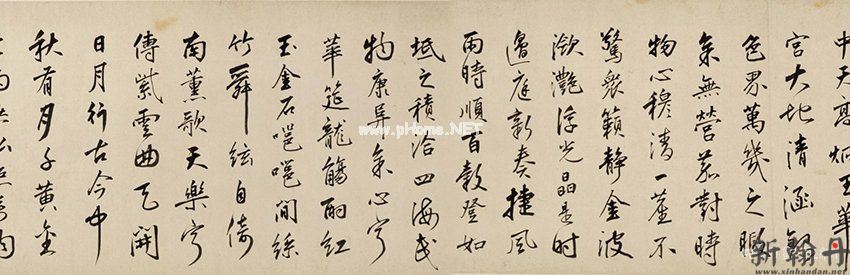 中天 炯玉華
宮大地清涵銀
色界萬幾之暇
余無營茲對時
物心穆清一塵不
驚衆籟靜金波
瀲灔浮光晶是時
邊庭新奏捷風
雨時順百穀登如
坻之積洽四海民
物康阜余心寧
華筵龍觴酌紅
玉金石 間絲
竹舜絃自倚
南薰歌天樂寧
傳紫雲曲天開
日月行古今中
秋看月子黃金
www.pHome.NET
新翰丹
www.xinhandan.net